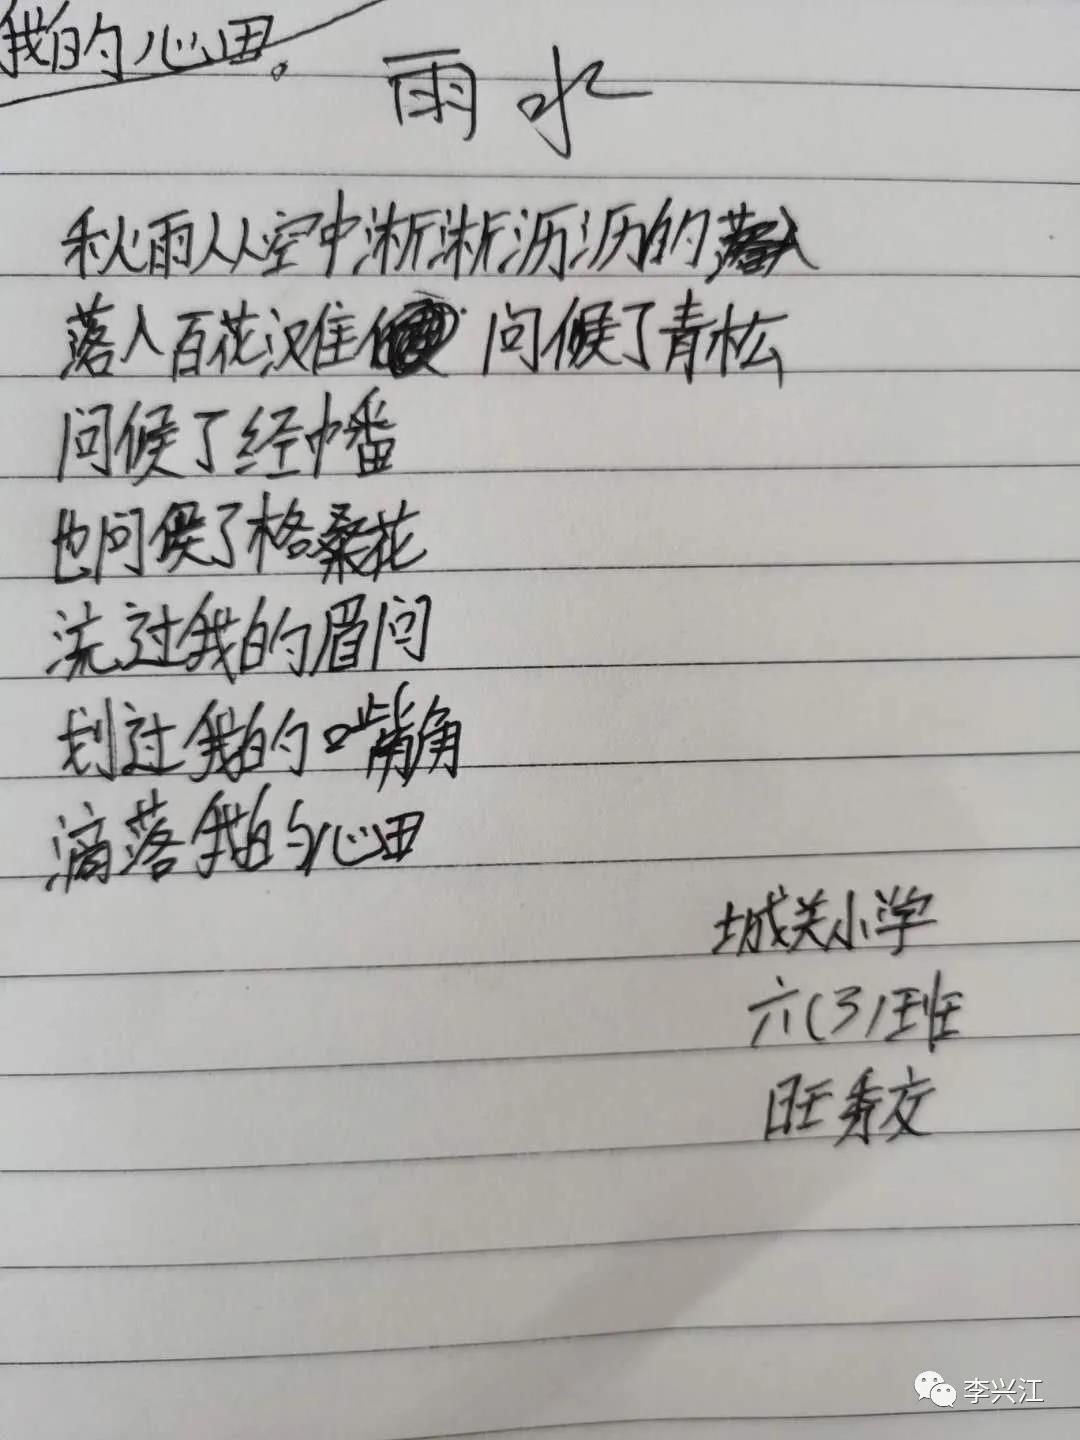 我的心田。
雨水
秋雨从空中淅淅沥沥的
落入百花滩 问候了青松
问候了经幡
也问候了格桑花
流过我的眉间
划过我的嘴角
滴落我的心田
城关小学
六(3)班
旺秀文
李兴江